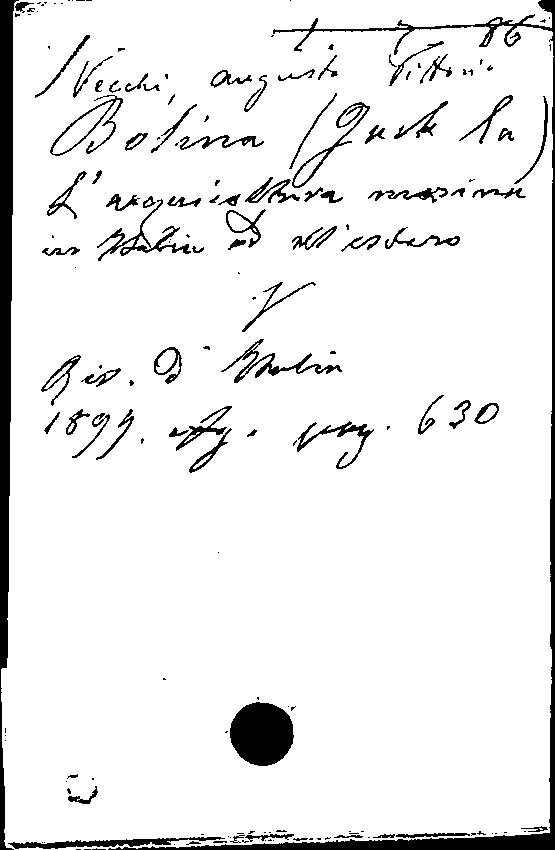 86
Vecchi, Augusto Vittorio
Bolina (Jack la)
L'acquicoltura marina
in Italia ed all'estero
V
Riv. d'Italia
1899. Ag. pag. 630